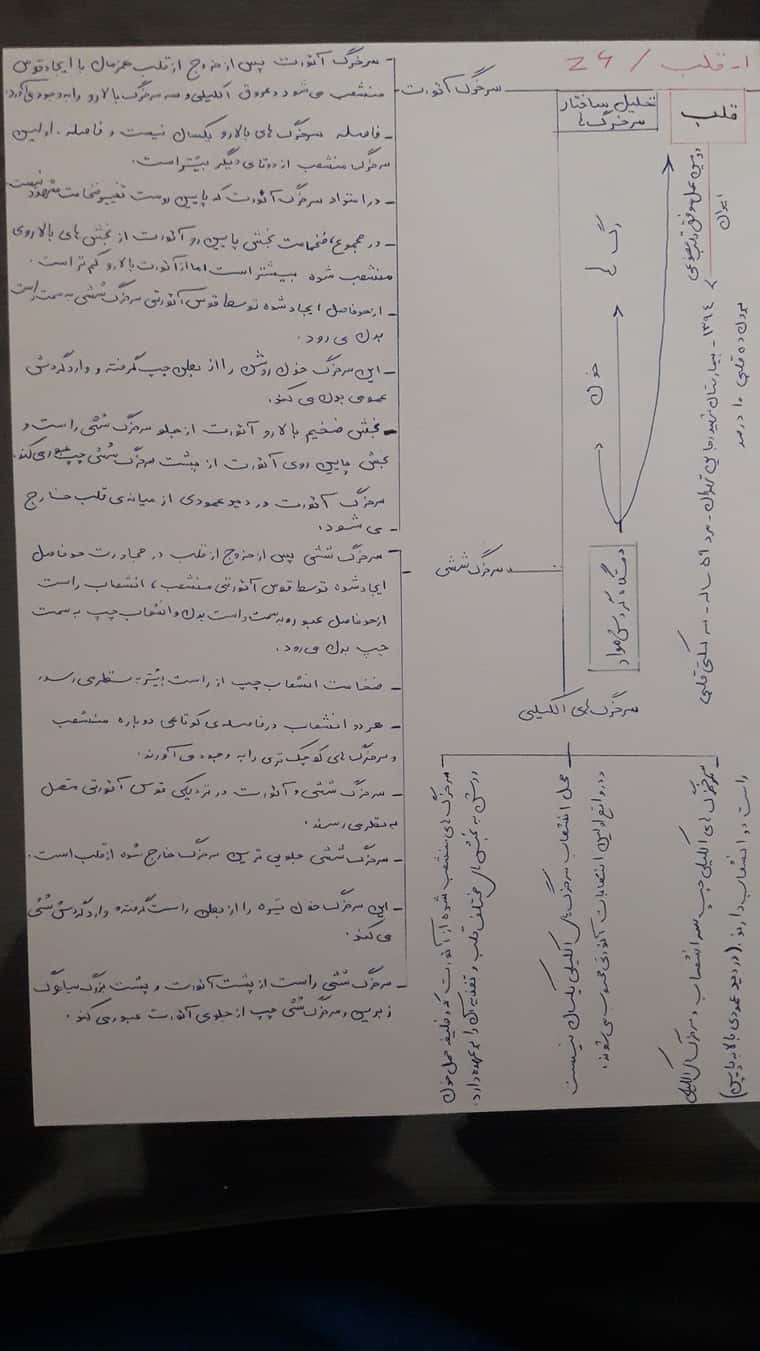 ۱- قلب / Z4
قلب
تحلیل ساختار
سرخرگ ها
دومین عمل موفق قلب مصنوعی
ایران
۱۳۹۴ - بیمارستان شهید رجایی تهران - مرد ۵۹ ساله - سکته قلبی
برون ده قلبی ۱۰ درصد
رگ ها
خون
دستگاه گردش مواد
سرخرگ آئورت
- سرخرگ آئورت پس از خروج از قلب همزمان با ایجاد قوس
منشعب می شود و عروق اکلیلی و سه سرخرگ بالارو را به وجود می آورد.
- فاصله سرخرگ های بالارو یکسان نیست و فاصله اولین
سرخرگ منشعب از دوتای دیگر بیشتر است.
- در امتداد سرخرگ آئورت که پایین روست تغییر ضخامت مشهود نیست
- در مجموع، ضخامت بخش پایین رو آئورت از بخش های بالاروی
منشعب شده بیشتر است اما از آئورت بالارو کم تر است.
- از حد فاصل ایجاد شده توسط قوس آئورتی سرخرگ ششی به سمت راست
بدن می رود.
- این سرخرگ خون روشن را از بطن چپ گرفته و وارد گردش
عمومی بدن می کند.
- بخش ضخیم بالارو آئورت از جلو سرخرگ ششی راست و
بخش پایین روی آئورت از پشت سرخرگ ششی چپ عبور می کند.
سرخرگ آئورت در دید عمودی از میانه ی قلب خارج
- می شود.
سرخرگ ششی
- سرخرگ ششی پس از خروج از قلب در مجاورت حد فاصل
ایجاد شده توسط قوس آئورتی منشعب، انشعاب راست
از حد فاصل عبور و به سمت راست بدن و انشعاب چپ به سمت
چپ بدن می رود.
- ضخامت انشعاب چپ از راست بیشتر به نظر می رسد.
- هر دو انشعاب در فاصله ی کوتاهی دوباره منشعب
و سرخرگ های کوچک تری را به وجود می آورند.
- سرخرگ ششی و آئورت در نزدیکی قوس آئورتی متصل
به نظر می رسند.
- سرخرگ ششی جلویی ترین سرخرگ خارج شده از قلب است.
- این سرخرگ خون تیره را از بطن راست گرفته و وارد گردش ششی
می کند.
- سرخرگ ششی راست از پشت آئورت و پشت بزرگ سیاهرگ
زبرین و سرخرگ ششی چپ از جلوی آئورت عبور می کند.
سرخرگ های اکلیلی
سرخرگ های اکلیلی چپ سه انشعاب و سرخرگ اکلیلی
راست دو انشعاب دارند. (در دید عمودی بالا به پایین)
محل انشعاب سرخرگ های اکلیلی یکسان نیست
در واقع اولین انشعابات آئورتی محسوب می شوند.
سرخرگ های منشعب شده از آئورت که وظیفه حمل خون
روشن به بخش های مختلف قلب و تغذیه آن را بر عهده دارد.